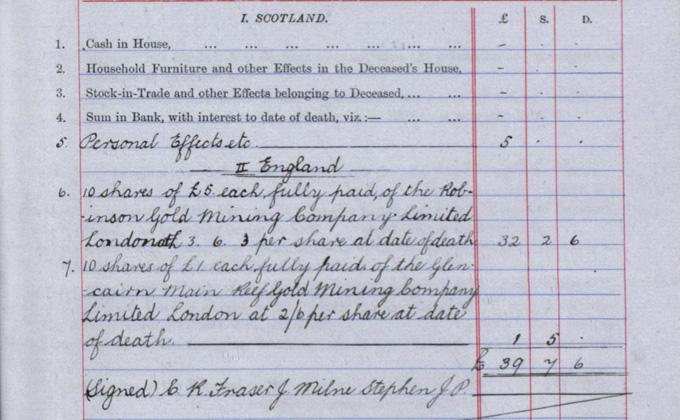 I. SCOTLAND. £ S. D.
1. Cash in House, ... ... ... ... ... ... ... – . .
2. Household Furniture and other Effects in the Deceased's House, – . .
3. Stock-in-Trade and other Effects belonging to Deceased, ... ... – . .
4. Sum in Bank, with interest to date of death, viz. :— ... ... – . .
5. Personal Effects etc. 5 . .
II England
6. 10 shares of £5 each, fully paid, of the Rob-
-inson Gold Mining Company Limited
London at £ 3. 6. 3 per share at date of death 32 2 6
7. 10 shares of £1 each, fully paid, of the Glen-
-cairn Main Reef Gold Mining Company
Limited London at 2/6 per share at date
of death. 1 5 .
£ 39 7 6
(Signed) C R. Fraser J. Milne Stephen J.P.